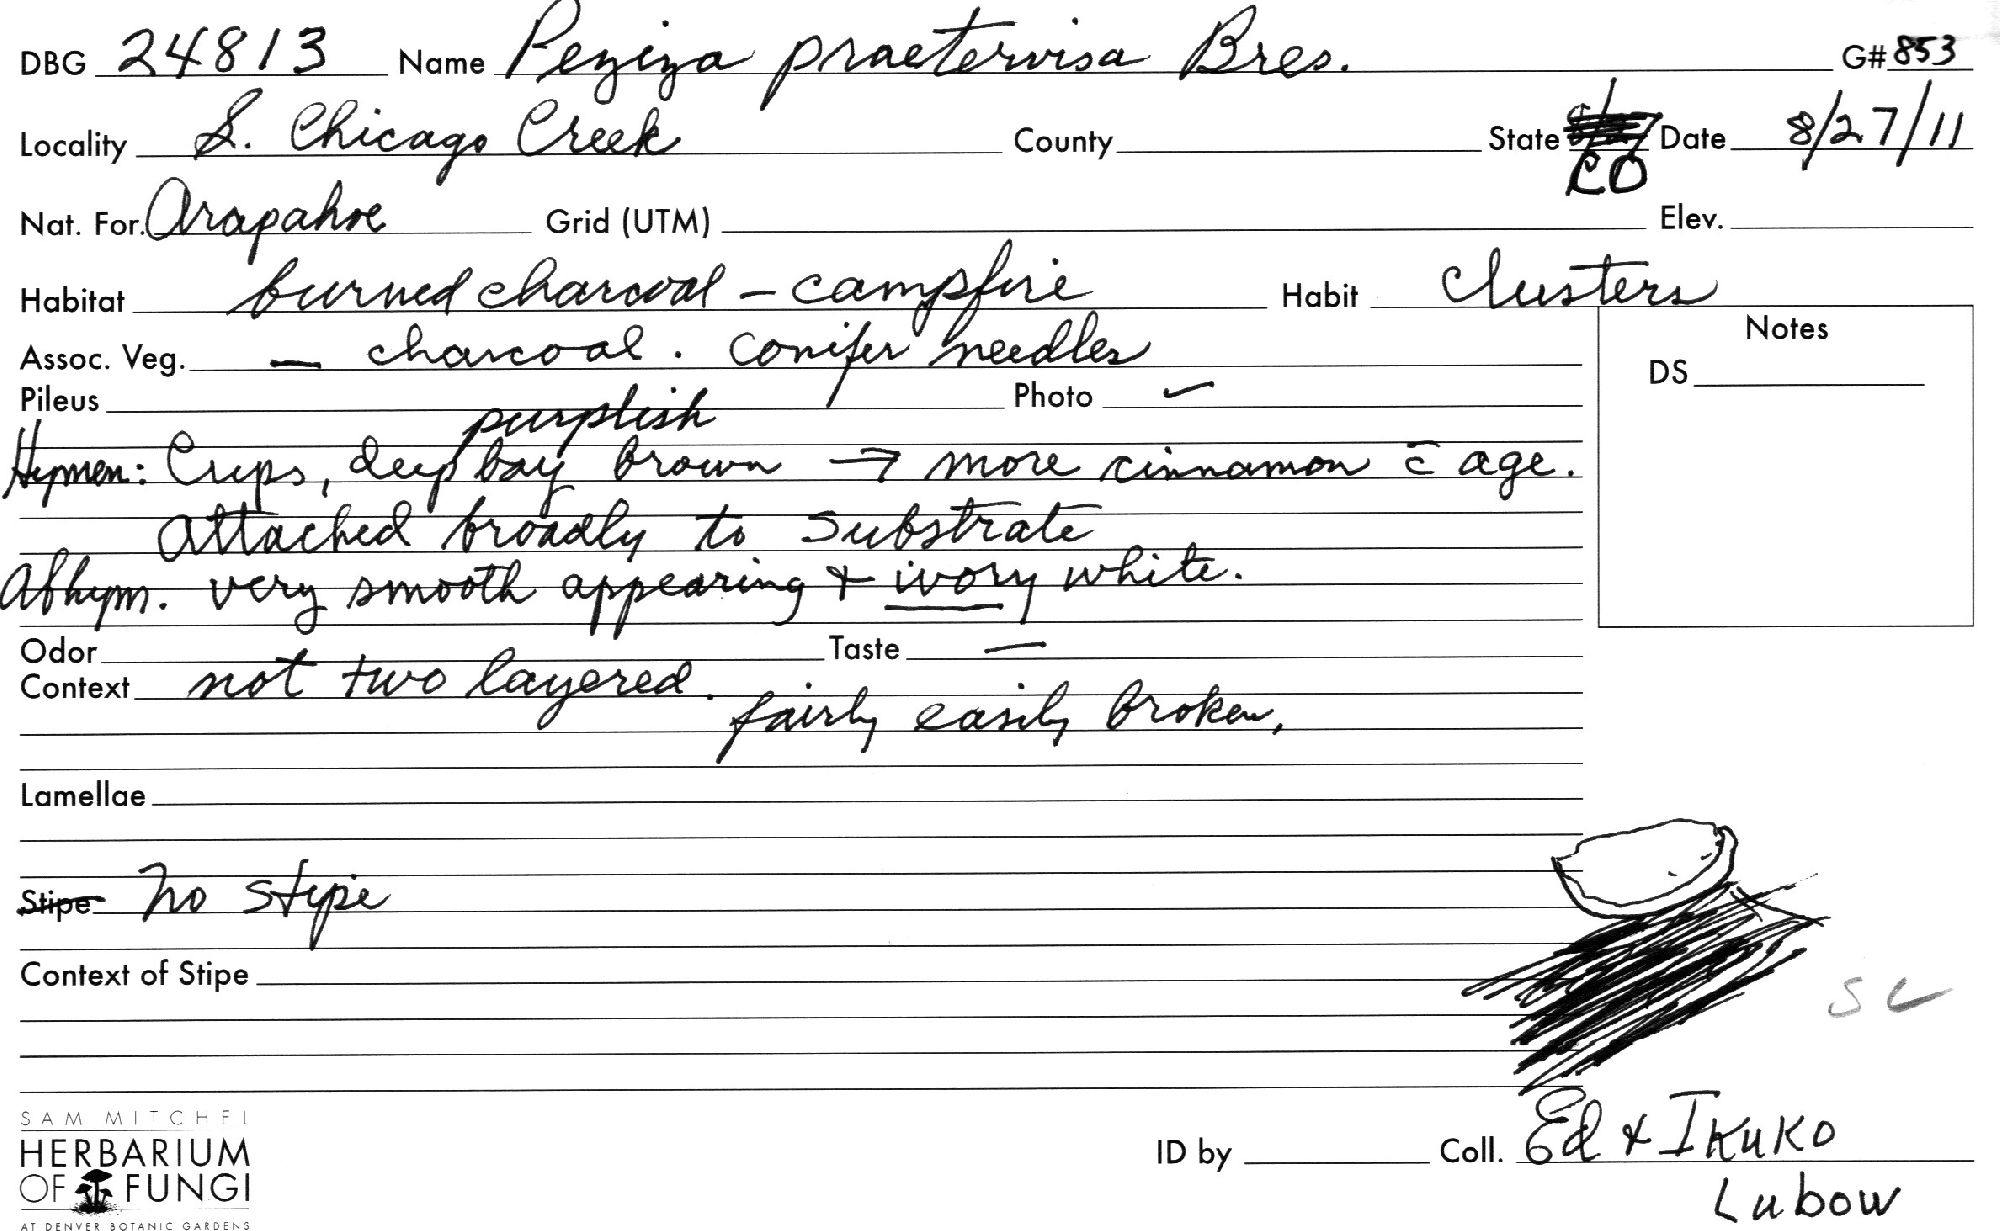 DBG 24813 Name Peziza praetervisa Bres. G# 853
Locality S. Chicago Creek County State CO Date 8/27/11
Nat. For. Arapahoe Grid (UTM) Elev.
Habitat burned charcoal – campfire Habit clusters
Assoc. Veg. — charcoal. conifer needles
Notes
DS
Pileus Photo ✓
purplish
Hymen: Cups, deep bay brown → more cinnamon c̄ age.
Attached broadly to substrate
Abhym. very smooth appearing & ivory white.
Odor Taste —
Context not two layered.
fairly easily broken,
Lamellae
Stipe no stipe
Context of Stipe
SAM MITCHEL
HERBARIUM
OF FUNGI
AT DENVER BOTANIC GARDENS
ID by Coll. Ed & Ikuko
Lubow